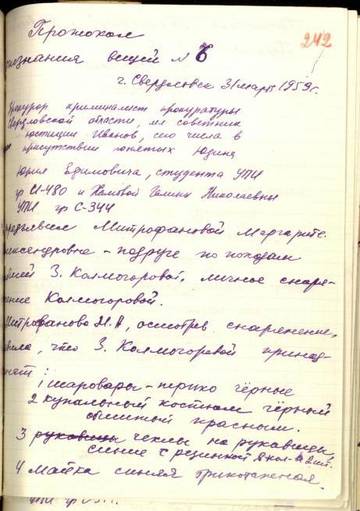 242
Протокол
опознания вещей № 6
г. Свердловск 31 марта 1959 г.
Прокурор криминалист прокуратуры
Свердловской области, мл советник
юстиции Иванов, сего числа в
присутствии понятых Юдина
Юрия Ефимовича, студента УПИ
гр И-480 и Хамовой Галины Николаевны
УПИ гр С-344
предъявил Митрофановой Маргарите
Александровне - подруге по походам
З. Колмогоровой, личное снаря-
жение Колмогоровой.
Митрофанова М.А, осмотрев снаряжение,
что З. Колмогоровой принад-
лежат:
1 шаровары - трико чёрные
2 купальный костюм чёрный
вышитый красным.
3 рукавицы чехлы на рукавицы,
синие с резинкой 2 шт.
4 Майка синяя трикотажная.